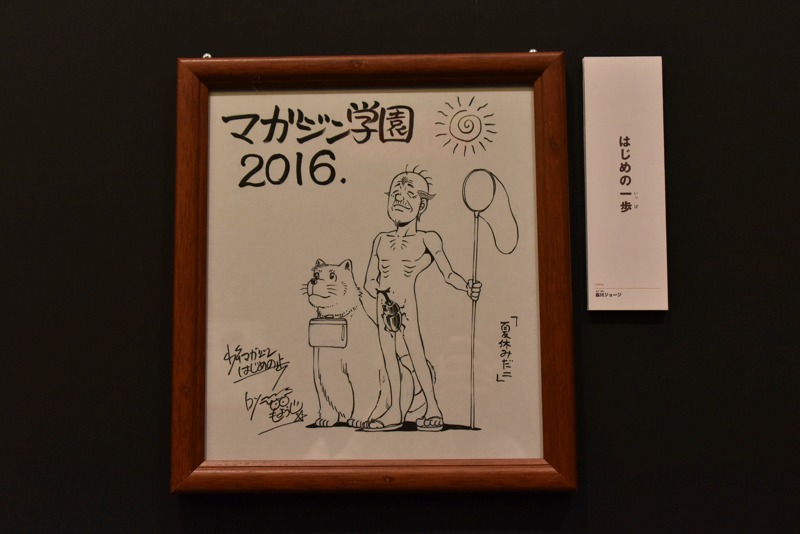 マガジン学園
2016.
「夏休みだ!!」
少年マガジン
はじめの一歩
by
はじめの一歩
いっぽ
森川ジョージ